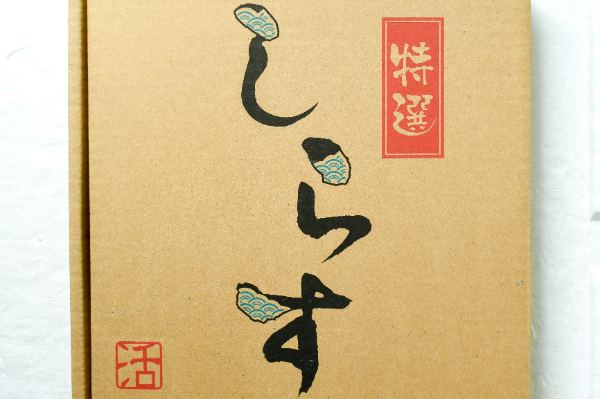 特選
しらす
活